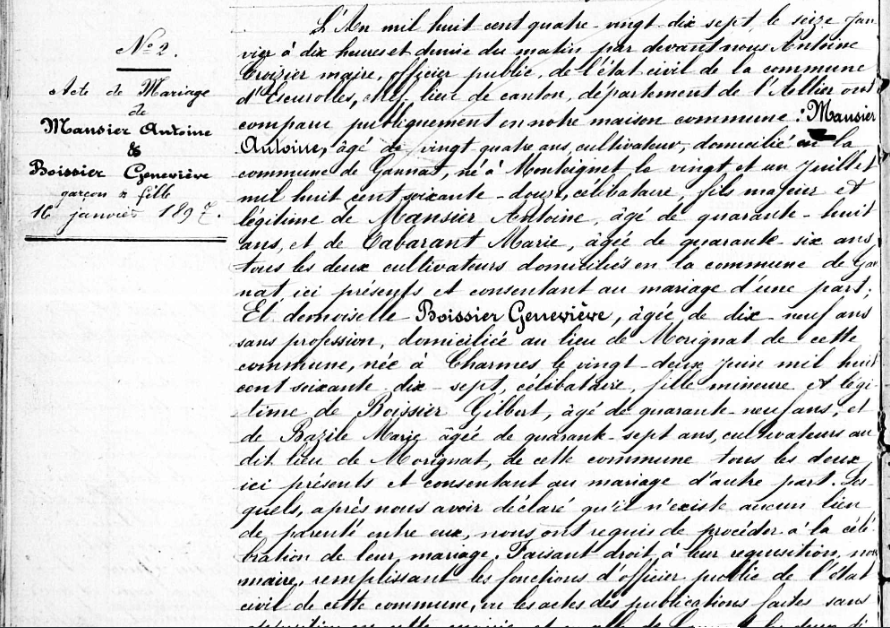 N° 2
Acte de Mariage
de
Mansier Antoine
&
Boissier Geneviève
garçon & fille
16 janvier 1897.
L'An mil huit cent quatre-vingt-dix sept, le seize jan
vier à dix heures et demie du matin par devant nous Antoine
Croizier maire, officier public, de l'état civil de la commune
d'Escurolles, chef lieu de canton, département de l'Allier ont
comparu publiquement en notre maison commune : Mansier
Antoine, âgé de vingt quatre ans, cultivateur, domicilié en la
commune de Gannat, né à Monteignet le vingt et un Juillet
mil huit cent soixante-douze, célibataire, fils majeur et
légitime de Mansier Antoine, âgé de quarante-huit
ans, et de Tabarant Marie, âgée de quarante-six ans
tous les deux cultivateurs domiciliés en la commune de Gan
nat, ici présents et consentant au mariage d'une part;
Et demoiselle Boissier Geneviève, âgée de dix-neuf ans
sans profession, domiciliée au lieu de Morignat de cette
commune, née à Charmes le vingt-deux Juin mil huit
cent soixante dix-sept, célibataire, fille mineure et légi-
time de Boissier Gilbert, âgé de quarante-neuf ans, et
de Bazile Marie âgée de quarante-sept ans, cultivateurs au
dit lieu de Morignat, de cette commune tous les deux
ici présents et consentant au mariage d'autre part. Les-
quels, après nous avoir déclaré qu'il n'existe aucun lien
de parenté entre eux, nous ont requis de procéder à la célé-
bration de leur mariage. Faisant droit, à leur requisition, nous
maire, remplissant les fonctions d'officier public de l'état
civil de cette commune, vu les actes des publications faites sans